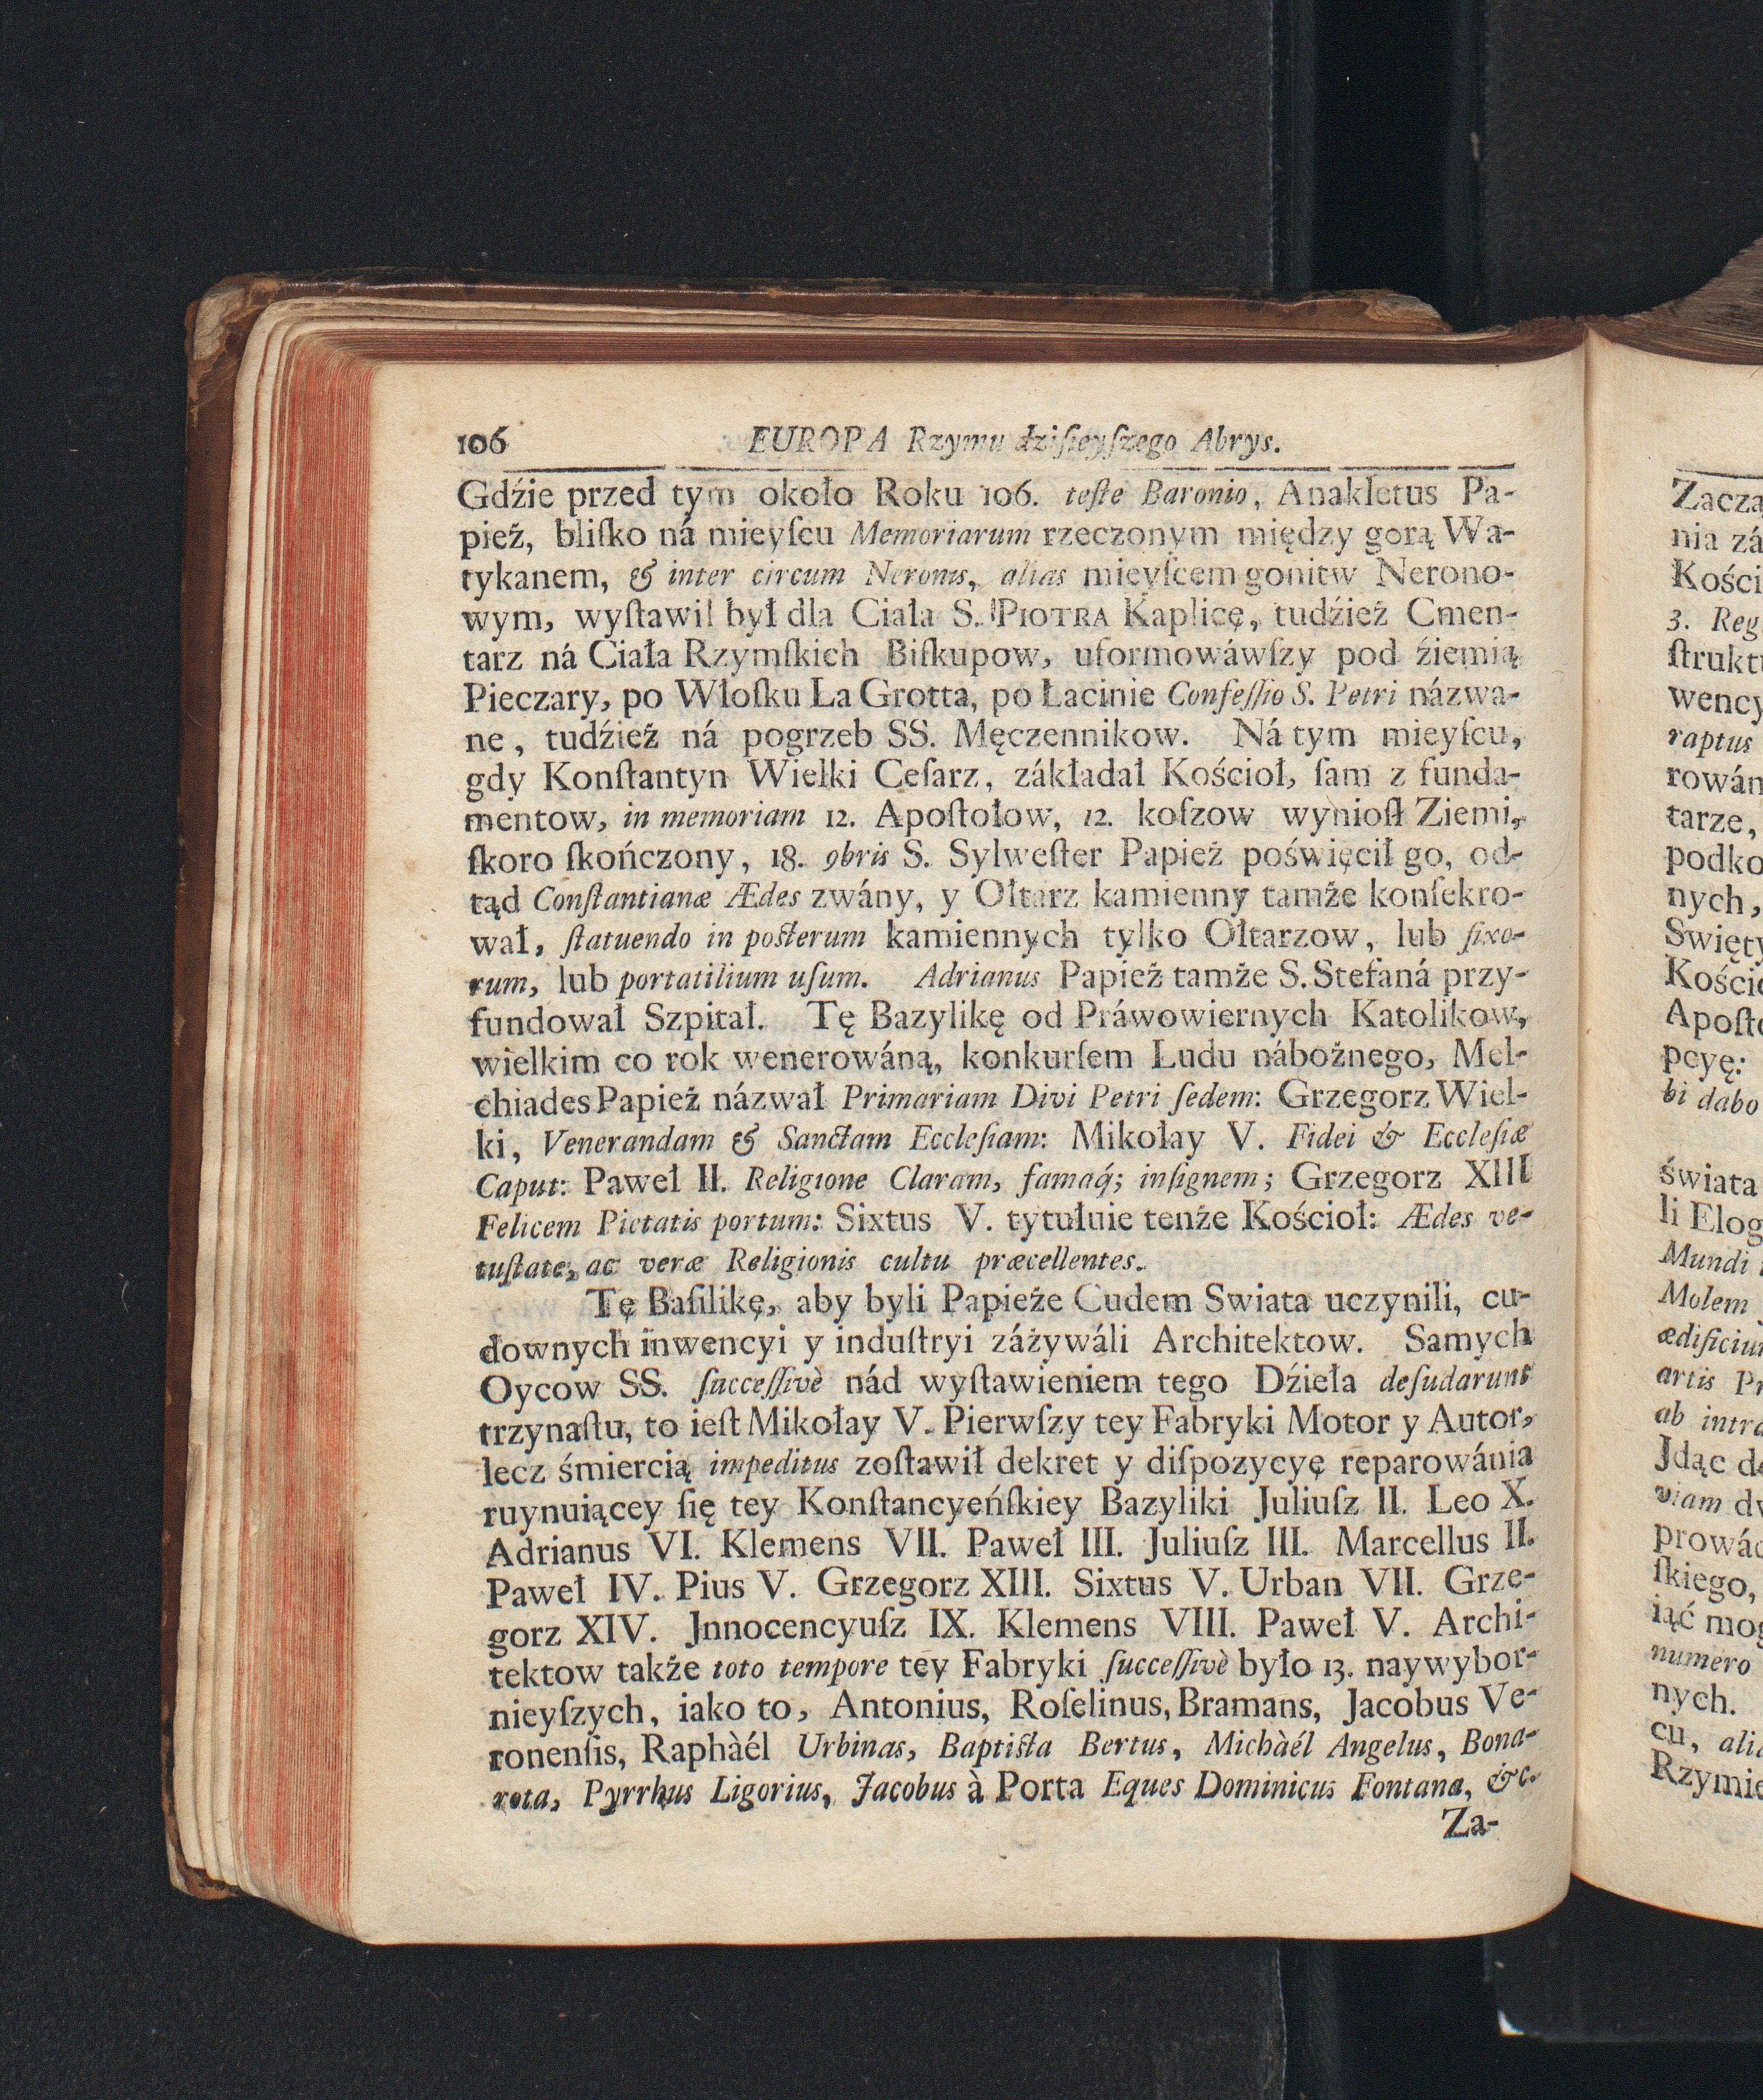 106 EUROPA Rzymu dziſieyſzego Abrys.
Gdźie przed tym około Roku 106. teſte Baronio, Anakletus Pa-
pież, bliſko ná mieyſcu Memoriarum rzeczonym między gorą Wa-
tykanem, & inter circum Neronis, alias mieyſcem gonitw Nerono-
wym, wyſtawil był dla Ciała S. PIOTRA Kaplicę, tudźież Cmen-
tarz ná Ciała Rzymſkich Biſkupow, uformowáwſzy pod źiemią
Pieczary, po Włoſku La Grotta, po Łacinie Confeſſio S. Petri názwa-
ne, tudźież ná pogrzeb SS. Męczennikow. Ná tym mieyſcu,
gdy Konſtantyn Wielki Ceſarz, zákładał Kościoł, ſam z funda-
mentow, in memoriam 12. Apoſtołow, 12. koſzow wyniosł Ziemi,
ſkoro ſkończony, 18. 9bris S. Sylweſter Papież poświęcił go, od-
tąd Conſtantianæ Ædes zwány, y Ołtarz kamienny tamże konſekro-
wał, ſtatuendo in poſterum kamiennych tylko Ołtarzow, lub fixo-
rum, lub portatilium uſum. Adrianus Papież tamże S. Stefaná przy-
fundował Szpitał. Tę Bazylikę od Práwowiernych Katolikow,
wielkim co rok wenerowáną, konkurſem Ludu nábożnego, Mel-
chiades Papież názwał Primariam Divi Petri ſedem: Grzegorz Wiel-
ki, Venerandam & Sanctam Eccleſiam: Mikołay V. Fidei & Eccleſiæ
Caput: Paweł II. Religione Claram, famaq́; inſignem; Grzegorz XIII
Felicem Pietatis portum: Sixtus V. tytułuie tenże Kościoł: Ædes ve-
tuſtate, ac veræ Religionis cultu præcellentes.
Tę Baſilikę, aby byli Papieże Cudem Swiata uczynili, cu-
downych inwencyi y induſtryi záżywáli Architektow. Samych
Oycow SS. ſucceſſivè nád wyſtawieniem tego Dźieła deſudarunt
trzynaſtu, to ieſt Mikołay V. Pierwſzy tey Fabryki Motor y Autor,
lecz śmiercią impeditus zoſtawił dekret y diſpozycyę reparowánia
ruynuiącey ſię tey Konſtancyeńſkiey Bazyliki Juliuſz II. Leo X.
Adrianus VI. Klemens VII. Paweł III. Juliuſz III. Marcellus II.
Paweł IV. Pius V. Grzegorz XIII. Sixtus V. Urban VII. Grze-
gorz XIV. Jnnocencyuſz IX. Klemens VIII. Paweł V. Archi-
tektow także toto tempore tey Fabryki ſucceſſivè było 13. naywybor-
nieyſzych, iako to, Antonius, Roſelinus, Bramans, Jacobus Ve-
ronenſis, Raphàél Urbinas, Baptiſta Bertus, Michàél Angelus, Bona-
rota, Pyrrhus Ligorius, Jacobus à Porta Eques Dominicus Fontana, &c.
Za-
Zaczą
nia zá
Kości
3. Reg
ſtrukt
wency
raptus
rowán
tarze,
podko
nych,
Swięty
Kości
Apoſto
pcyę:
bi dabo
świata
li Elog
Mundi
Molem
ædificiu
artis Pr
ab intra
Jdąc d
viam
prowá
ſkiego,
iąć mog
numero
nych.
cu, ali
Rzymie